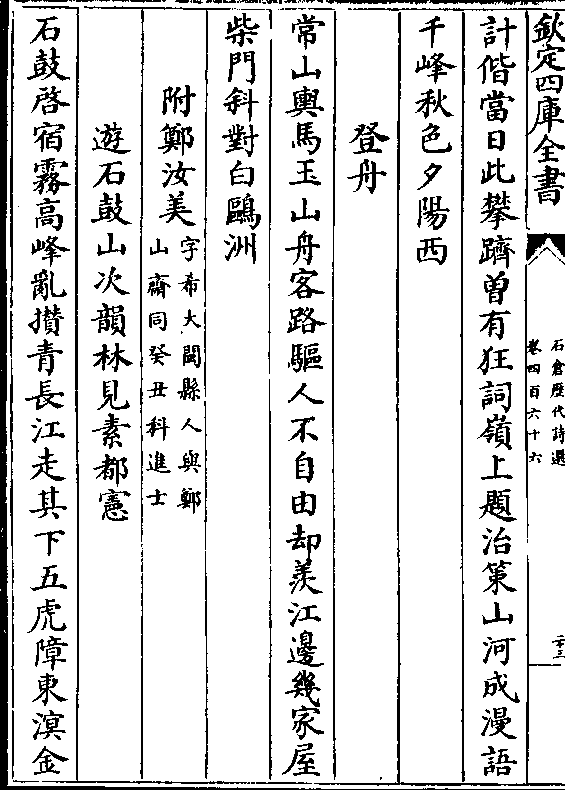 欽定四庫全書
石倉歴代詩選
卷四百六十六
二十三
計偕當日此攀躋曾有狂詞嶺上題治策山河成漫語
千峰秋色夕陽西
登舟
常山輿馬玉山舟客路驅人不自由却羨江邊幾家屋
柴門斜對白鷗洲
附鄭汝美
字希大閩縣人與鄭
山齋同癸丑科進士
遊石鼓山次韻林見素都憲
石鼓啓宿霧高峰亂攢青長江走其下五虎障東溟金